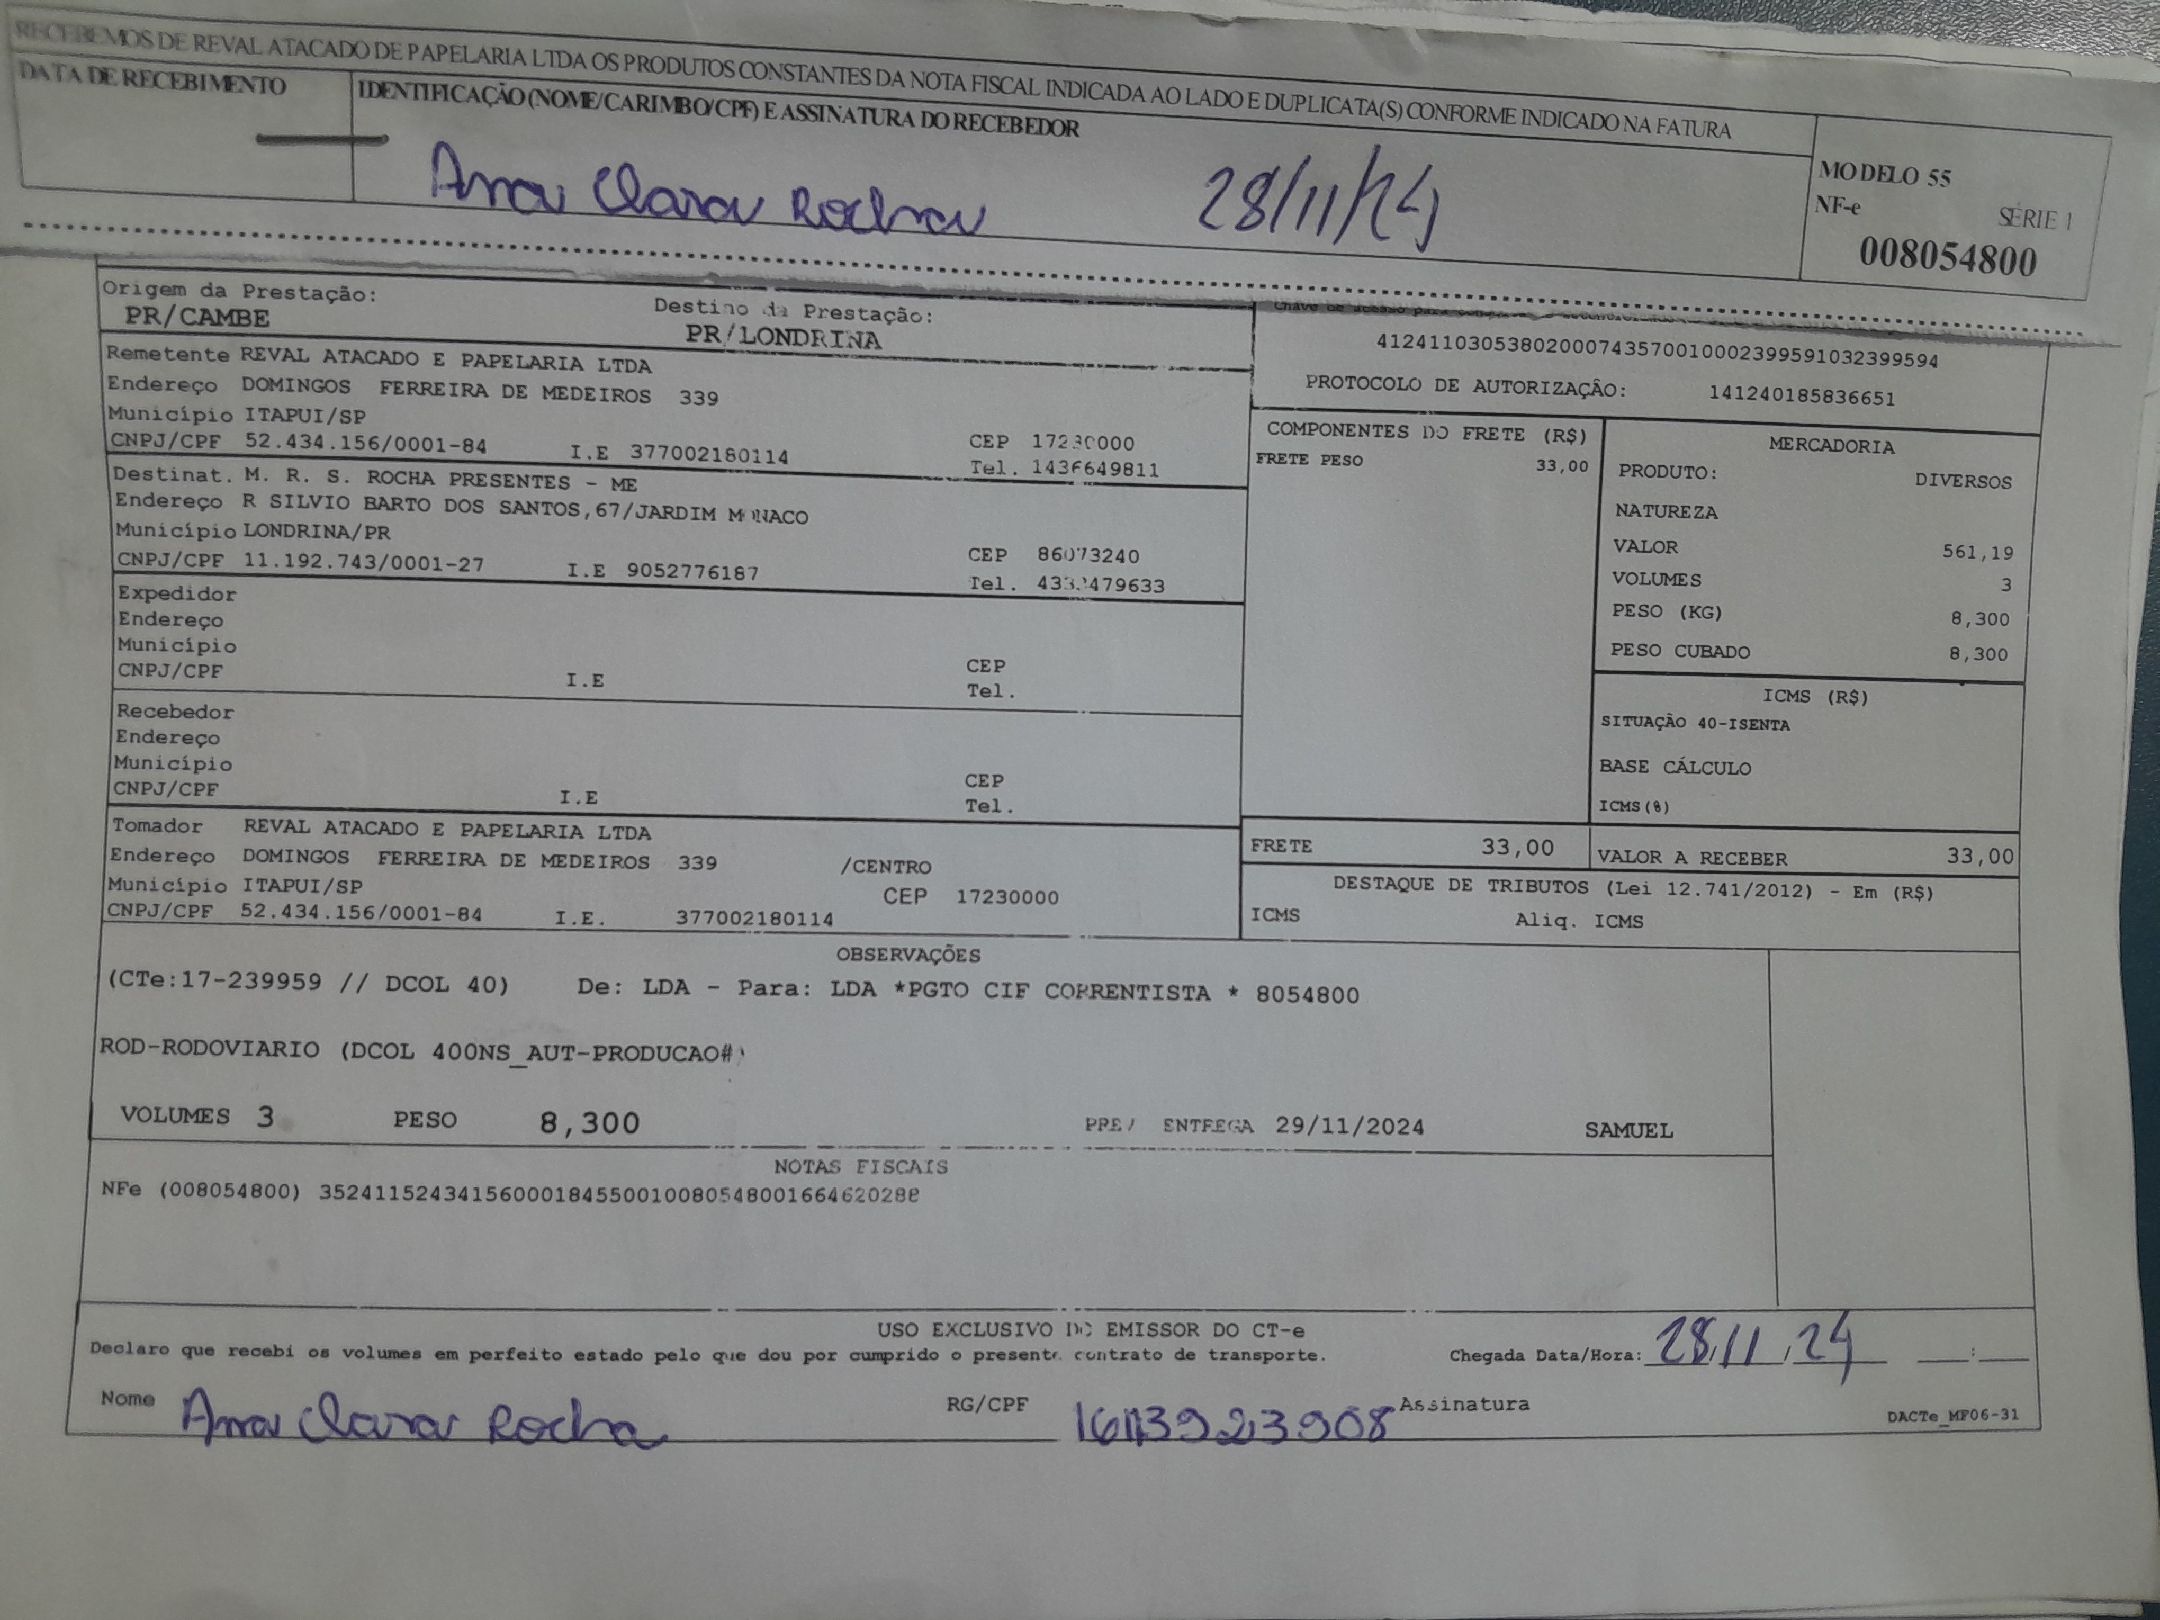 RECEBEMOS DE REVAL ATACADO DE PAPELARIA LTDA OS PRODUTOS CONSTANTES DA NOTA FISCAL INDICADA AO LADO E DUPLICATA(S) CONFORME INDICADO NA FATURA
DATA DE RECEBIMENTO
IDENTIFICAÇÃO (NOME/CARIMBO/CPF) E ASSINATURA DO RECEBEDOR
Ana Clara Rocha 28/11/24
MODELO 55
NF-e SÉRIE 1
008054800
Origem da Prestação:
PR/CAMBE
Destino da Prestação:
PR/LONDRINA
Remetente REVAL ATACADO E PAPELARIA LTDA
Endereço DOMINGOS FERREIRA DE MEDEIROS 339
Município ITAPUI/SP
CNPJ/CPF 52.434.156/0001-84 I.E 377002180114
CEP 17230000
Tel. 1436649811
Destinat. M. R. S. ROCHA PRESENTES - ME
Endereço R SILVIO BARTO DOS SANTOS,67/JARDIM MONACO
Município LONDRINA/PR
CNPJ/CPF 11.192.743/0001-27 I.E 9052776187
CEP 86073240
Tel.
Expedidor
Endereço
Município
CNPJ/CPF I.E
CEP
Tel.
Recebedor
Endereço
Município
CNPJ/CPF I.E
CEP
Tel.
Tomador REVAL ATACADO E PAPELARIA LTDA
Endereço DOMINGOS FERREIRA DE MEDEIROS 339 /CENTRO
Município ITAPUI/SP CEP 17230000
CNPJ/CPF 52.434.156/0001-84 I.E. 377002180114
41241103053802000743570010002399591032399594
PROTOCOLO DE AUTORIZAÇÃO: 141240185836651
COMPONENTES DO FRETE (R$)
FRETE PESO 33,00
MERCADORIA
PRODUTO: DIVERSOS
NATUREZA
VALOR 561,19
VOLUMES 3
PESO (KG) 8,300
PESO CUBADO 8,300
ICMS (R$)
SITUAÇÃO 40-ISENTA
BASE CÁLCULO
ICMS(%)
FRETE 33,00
VALOR A RECEBER 33,00
DESTAQUE DE TRIBUTOS (Lei 12.741/2012) - Em (R$)
ICMS Aliq. ICMS
OBSERVAÇÕES
(CTe:17-239959 // DCOL 40) De: LDA - Para: LDA *PGTO CIF CORRENTISTA * 8054800
ROD-RODOVIARIO (DCOL 400NS_AUT-PRODUCAO#)
VOLUMES 3 PESO 8,300 ENTREGA 29/11/2024 SAMUEL
NOTAS FISCAIS
NFe (008054800)
USO EXCLUSIVO DO EMISSOR DO CT-e
Declaro que recebi os volumes em perfeito estado pelo que dou por cumprido o presente contrato de transporte.
Chegada Data/Hora: 28/11/24 __:__
Nome Ana Clara Rocha RG/CPF 1613923908 Assinatura
DACTe_MF06-31